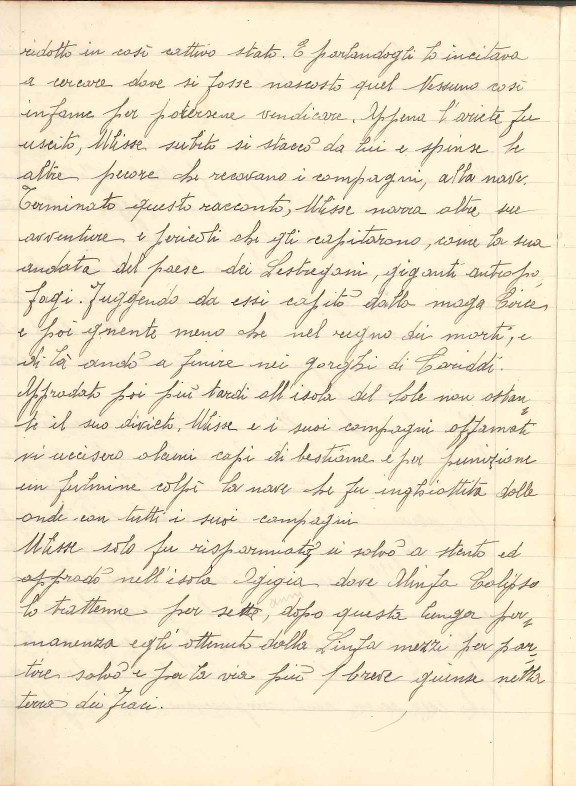 ridotto in così cattivo stato. E parlandogli lo incitava
a cercare dove si fosse nascosto quel Nessuno così
infame per potersene vendicare. Appena l'ariete fu
uscito, Ulisse subito si staccò da lui e spinse le
altre pecore che recavano i compagni, alla nave.
Terminato questo racconto, Ulisse narra altre sue
avventure e pericoli che gli capitarono, come la sua
andata del paese dei Lestregoni, giganti antropo,
fagi. Fuggendo da essi capitò dalla maga Circe,
e poi gnente meno che nel regno dei morti, e
di là andò a finire nei gorghi di Cariddi.
Approdato poi più tardi all'isola del Sole non ostan=
te il suo divieto, Ulisse e i suoi compagni affamati
vi uccisero alcuni capi di bestiame e per punizione
un fulmine colpì la nave che fu inghiottita dalle
onde con tutti i suoi compagni
Ulisse solo fu risparmiato, si salvò a stento ed
approdò nell'isola Ogigia dove Ninfa Calipso
lo trattenne per sette anni, dopo questa lunga per=
manenza egli ottenuto dalla Ninfa mezzi per par=
tire salvò e per la via più breve giunse nella
terra dei Feaci.